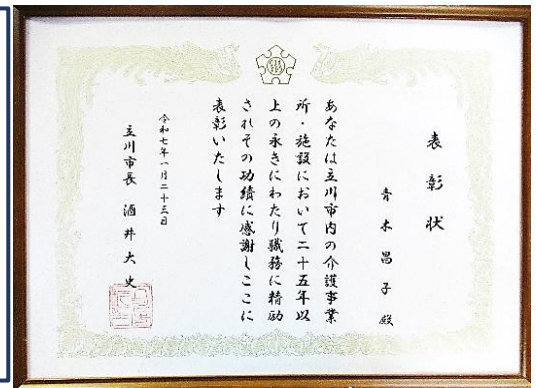 表彰状
青木昌子殿
あなたは立川市内の介護事業
所・施設において二十五年以
上の永きにわたり職務に精励
されその功績に感謝しここに
表彰いたします
令和七年一月二十三日
立川市長 酒井大史